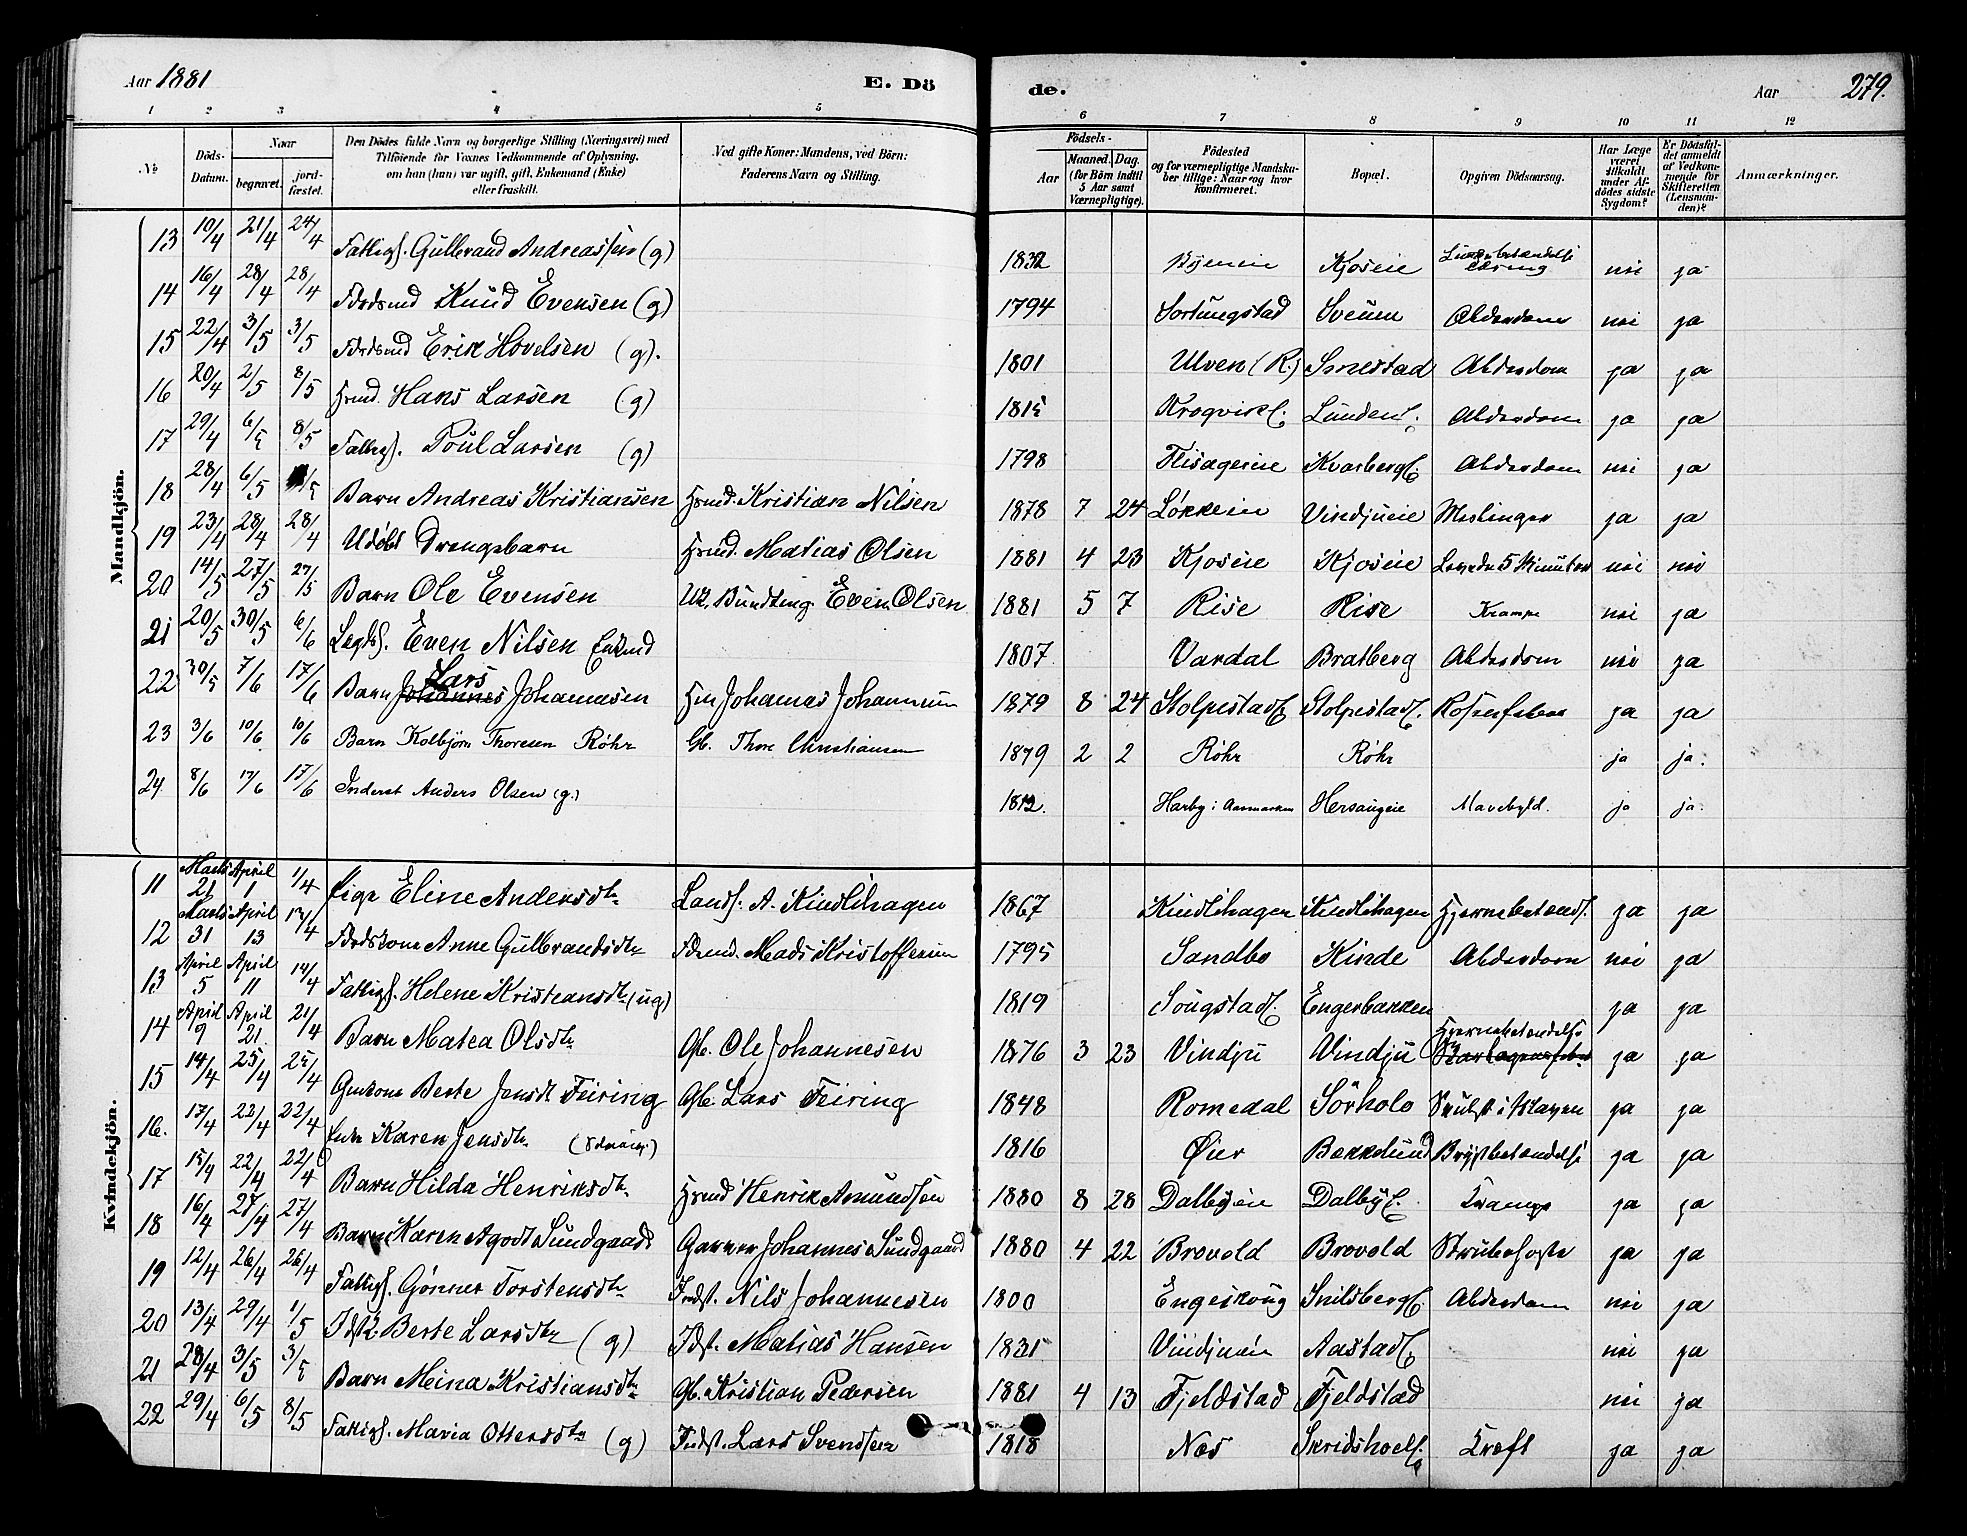 Aar 1881 E. Dö
de. Aar 279.
1 2 3 4 5 6 7 8 9 10 11 12
No. Döds-Datum. Naar begravet. jordfæstet. Den Dödes fulde Navn og borgerlige Stilling (Næringsvei) med Tilföiende for Voxnes Vedkommende af Oplysning, om han (hun) var ugift, gift, Enkemand (Enke) eller fraskilt. Ved gifte Koner: Mandens, ved Börn: Faderens Navn og Stilling. Födsels- Aar Maaned. Dag. (for Börn indtil 5 Aar samt Værnepligtige). Födested og for værnepligtige Mandskaber tillige: Naar og hvor konfirmeret. Bopæl. Opgiven Dödsaarsag. Har Læge været tilkaldt under Afdödes sidste Sygdom? Er Dödsfaldet anmeldt af Vedkommende for Skifteretten (Lensmanden)? Anmærkninger.
Mandkjön.
13 10/4 21/4 24/4 Fattigl. Gulbrand Andreassen (g) 1832 Kjoseie nei ja
14 16/4 28/4 28/4 Fdrdsmd Knud Evensen (g) 1794 Sortungstad Sveum Alderdom nei ja
15 22/4 3/5 3/5 Fdrdsmd Erik Hovelsen (g). 1801 Ulven (R.) Smestad Alderdom ja ja
16 20/4 2/5 8/5 Hmd. Hans Larsen (g) 1815 Krogvike. Lundene. Alderdom ja ja
17 29/4 6/5 8/5 Fattigl. Poul Larsen (g) 1798 Flisageie Kvarberge. Alderdom nei ja
18 28/4 6/5 /5 Barn Andreas Kristiansen Hmd. Kristian Nilsen 1878 7 24 Løkkeie Vindjueie Meslinger ja ja
19 23/4 28/4 28/4 Udøbt Drengebarn Hmd. Matias Olsen 1881 4 23 Kjoseie Kjoseie Levede 5 Minuter nei nei
20 14/5 27/5 27/5 Barn Ole Evensen Even Olsen 1881 5 7 Rise Rise Krampe nei ja
21 20/5 30/5 6/6 Lægdsl. Even Nilsen Enkmd 1807 Vardal Bratberg Alderdom nei ja
22 30/5 7/6 17/6 Barn Johannes Lars Johannesen Hm Johannes Johannesen 1879 8 24 Stolpestade Stolpestade. ja ja
23 3/6 10/6 10/6 Barn Kolbjörn Thoresen Røhr Gb. Thore Christiansen 1879 2 2 Røhr Røhr ja ja.
24. 8/6 17/6 17/6 Inderst Anders Olsen (g.) 1812. Harby i Aasmarken Hersaugeie Mavebyld. ja ja.
Kvindekjön.
11 Marts 21 April 1 1/4 Pige Eline Andersdtr. Lands. A. Kindlihagen 1867 Kindlihagen Kindlihagen Hjernebetænds. ja ja
12 Marts 31 April 13 13/4 Fdrdskone Anne Gulbrandsdtr Fdrmd. Mads Kristoffersen 1795 Sandbo Kinde Alderdom nei ja
13 April 5 April 11 14/4 Fattigl. Helene Kristiansdtr (ug) 1819 Sougstade Engerbakken ja ja
14 April 9 April 21. 21/4 Barn Matea Olsdtr Gb. Ole Johannesen 1876 3 23 Vindju Vindju Hjernebetændelse ja ja
15 14/4 25/4 25/4 Gmkone Berte Jensdt Feiring Gb. Lars Feiring 1848 Romedal Sörholo ja ja
16. 17/4 22/4 22/4 Enke Karen Jensdtr. 1816 Øier Bækkelund Brystbetændelse ja ja
17 15/4 22/4 22/4 Barn Hilda Henriksdtr. Hmd Henrik Amundsen 1880 8 28 Dalbyeie Dalbye. Krampe ja ja
18 16/4 27/4 27/4 Barn Karen Agodt Sundgaard Garver Johannes Sundgaard 1880 4 22 Brovold Brovold Strubehoste ja ja
19 12/4 26/4 26/4 Fattigl. Gönner Torstensdtr Indst. Nils Johannesen 1800 Engeskoug Snilsberge. Alderdom nei ja
20 13/4 29/4 1/5 Idstk. Berte Larsdtr (g) Idst. Matias Hansen 1831 Vindjueie Aastade. nei ja
21 28/4 3/5 3/5 Barn Meina Kristiansdtr Gb. Kristian Pedersen 1881 4 13 Fjeldstad Fjeldstad nei ja
22 29/4 6/5 8/5 Fattigl. Maria Ottersdtr (g) Indst. Lars Svendsen 1818 Næs Skridshole. Kræft ja ja